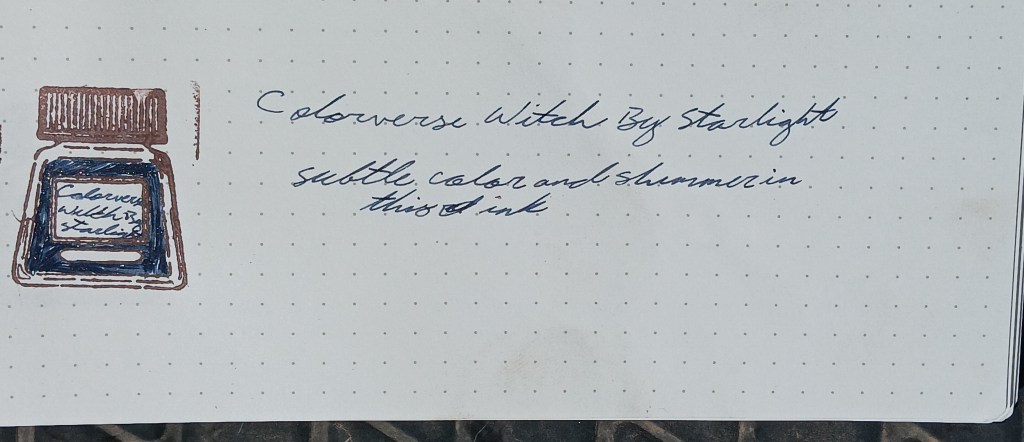 Colorverse
Witch By
Starlight
Colorverse Witch By Starlight
subtle color and shimmer in
this ink